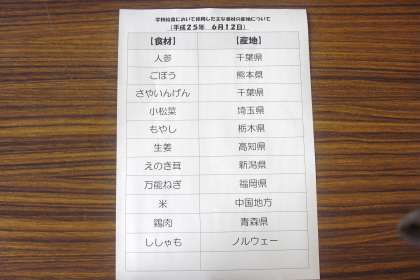 学校給食において使用した主な食材の産地について
(平成25年 6月12日)
【食材】 【産地】
人参 千葉県
ごぼう 熊本県
さやいんげん 千葉県
小松菜 埼玉県
もやし 栃木県
生姜 高知県
えのき茸 新潟県
万能ねぎ 福岡県
米 中国地方
鶏肉 青森県
ししゃも ノルウェー